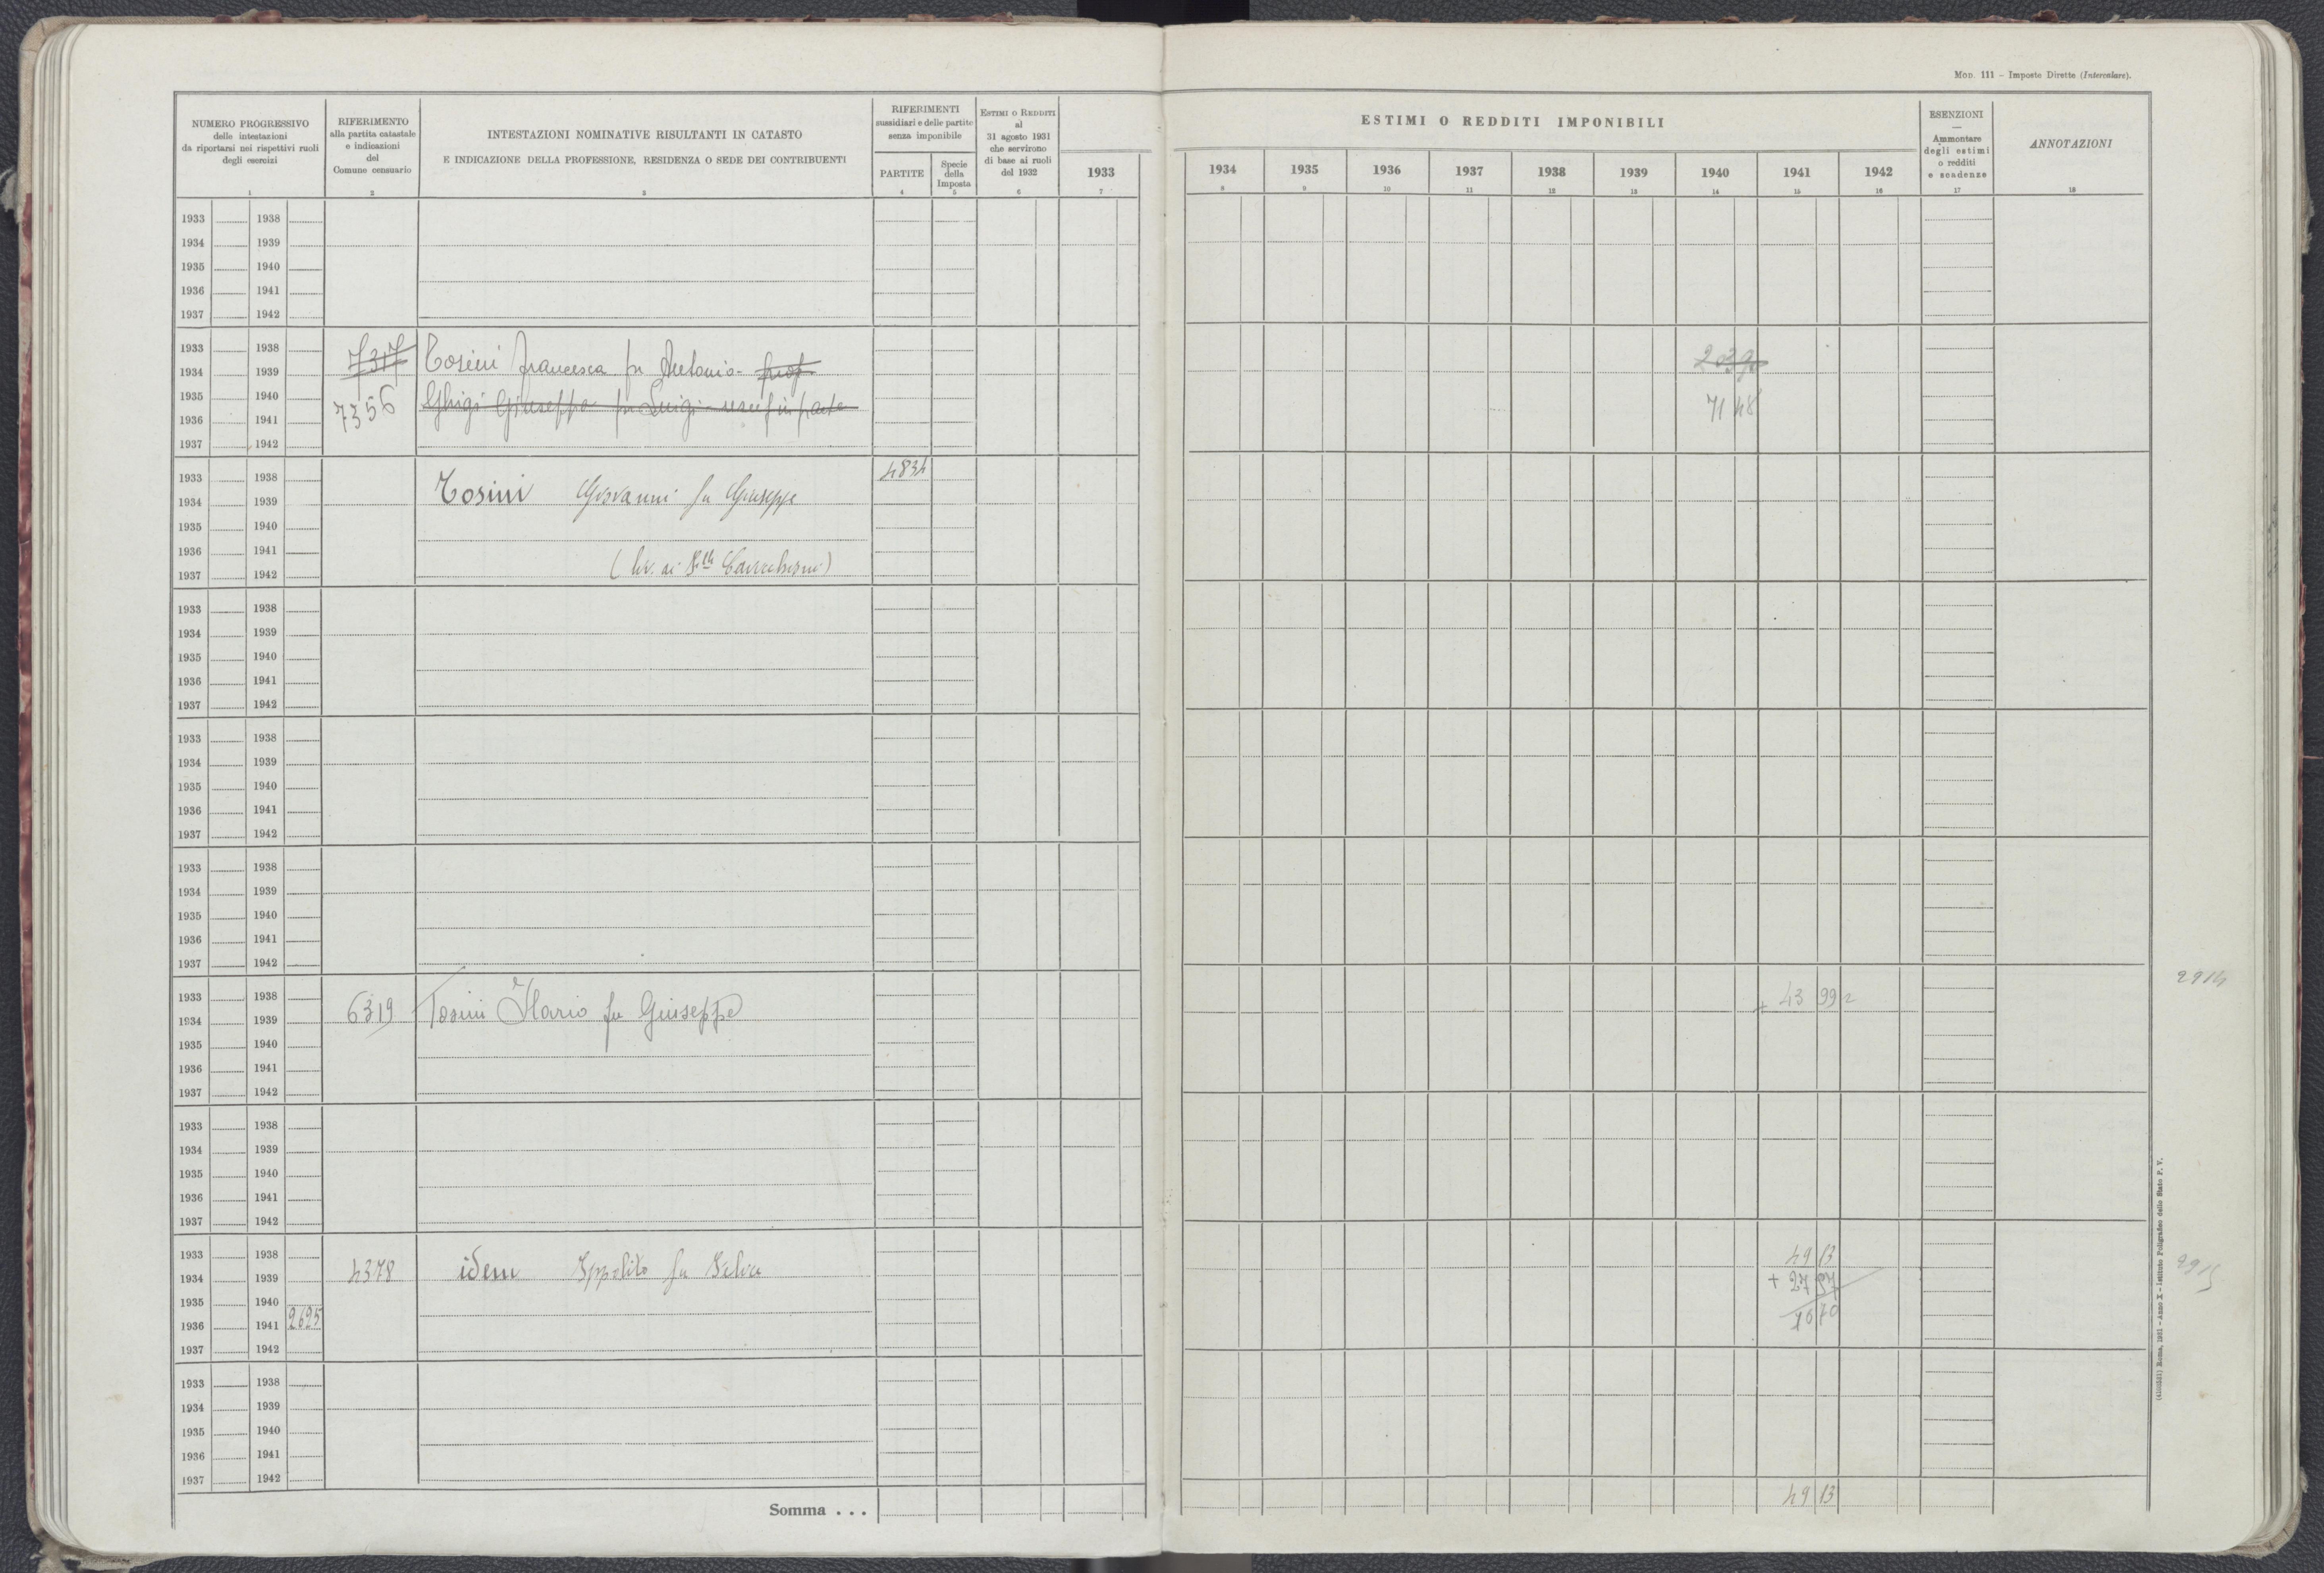 MOD. 111 – Imposte Dirette (Intercalare).
NUMERO PROGRESSIVO
delle intestazioni
da riportarsi nei rispettivi ruoli
degli esercizi
1
RIFERIMENTO
alla partita catastale
e indicazioni
del
Comune censuario
2
INTESTAZIONI NOMINATIVE RISULTANTI IN CATASTO
E INDICAZIONE DELLA PROFESSIONE, RESIDENZA O SEDE DEI CONTRIBUENTI
3
RIFERIMENTI
sussidiari e delle partite
senza imponibile
PARTITE
4
Specie
della
Imposta
5
ESTIMI O REDDITI
al
31 agosto 1931
che servirono
di base ai ruoli
del 1932
6
1933
7
ESTIMI O REDDITI IMPONIBILI
1934 1935 1936 1937 1938 1939 1940 1941 1942
8 9 10 11 12 13 14 15 16
ESENZIONI
—
Ammontare
degli estimi
o redditi
e scadenze
17
ANNOTAZIONI
18
1933 1938
1934 1939
1935 1940
1936 1941
1937 1942
1933 1938
7317 Tosini Francesca fu Antonio - prop
1934 1939
1935 1940
7356 Ghigi Giuseppe fu Luigi usuf in parte 71 48
1936 1941
1937 1942
4834
1933 1938
Tosini Giovanni fu Giuseppe
1934 1939
1935 1940
1936 1941
(liv. ai
1937 1942
1933 1938
1934 1939
1935 1940
1936 1941
1937 1942
1933 1938
1934 1939
1935 1940
1936 1941
1937 1942
1933 1938
1934 1939
1935 1940
1936 1941
1937 1942
2914
1933 1938
+ 43 99
6319 Tosini Ilario fu Giuseppe
1934 1939
1935 1940
1936 1941
1937 1942
1933 1938
1934 1939
1935 1940
1936 1941
1937 1942
1933 1938
49 13
4378 idem Ippolito fu Felice
1934 1939
1935 1940
1936 1941 2625
1937 1942
1933 1938
1934 1939
1935 1940
1936 1941
1937 1942
Somma . . . 49 13
Roma, 1931 – Anno X – Istituto Poligrafico dello Stato P. V.